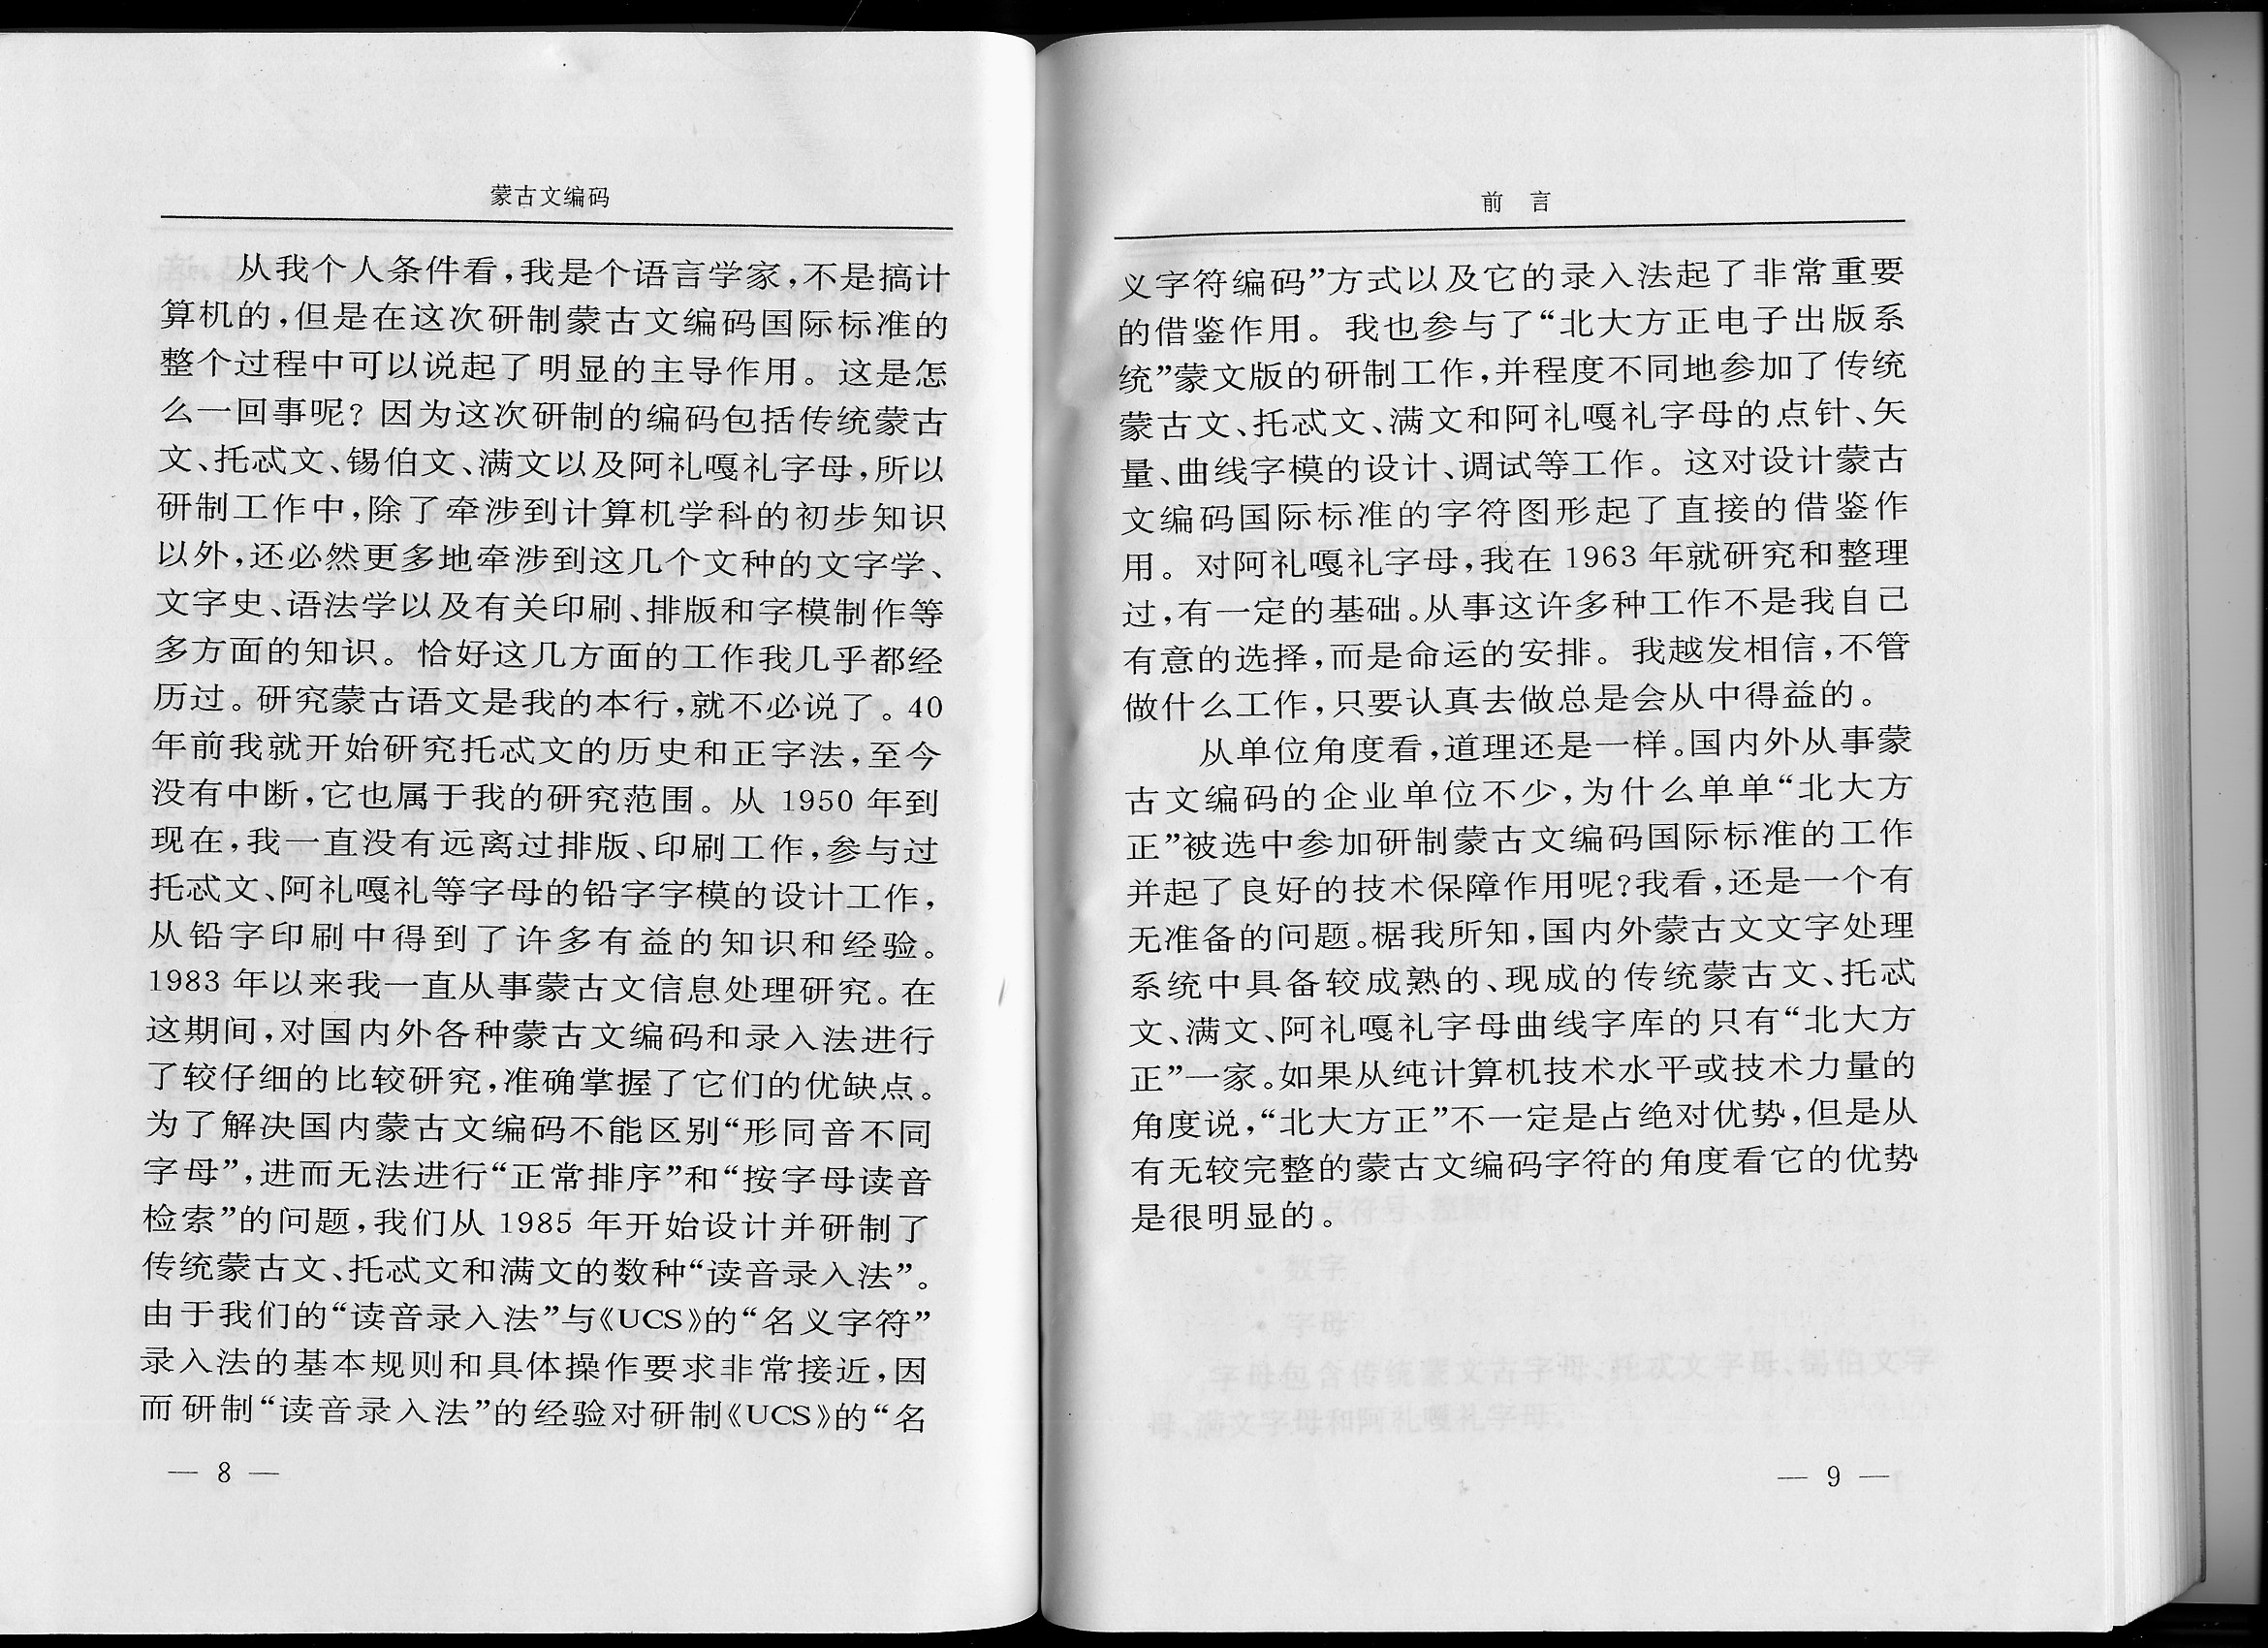 蒙古文编码
从我个人条件看，我是个语言学家，不是搞计
算机的，但是在这次研制蒙古文编码国际标准的
整个过程中可以说起了明显的主导作用。这是怎
么一回事呢？因为这次研制的编码包括传统蒙古
文、托忒文、锡伯文、满文以及阿礼嘎礼字母，所以
研制工作中，除了牵涉到计算机学科的初步知识
以外，还必然更多地牵涉到这几个文种的文字学、
文字史、语法学以及有关印刷、排版和字模制作等
多方面的知识。恰好这几方面的工作我几乎都经
历过。研究蒙古语文是我的本行，就不必说了。40
年前我就开始研究托忒文的历史和正字法，至今
没有中断，它也属于我的研究范围。从 1950 年到
现在，我一直没有远离过排版、印刷工作，参与过
托忒文、阿礼嘎礼等字母的铅字字模的设计工作，
从铅字印刷中得到了许多有益的知识和经验。
1983 年以来我一直从事蒙古文信息处理研究。在
这期间，对国内外各种蒙古文编码和录入法进行
了较仔细的比较研究，准确掌握了它们的优缺点。
为了解决国内蒙古文编码不能区别“形同音不同
字母”，进而无法进行“正常排序”和“按字母读音
检索”的问题，我们从 1985 年开始设计并研制了
传统蒙古文、托忒文和满文的数种“读音录入法”。
由于我们的“读音录入法”与《UCS》的“名义字符”
录入法的基本规则和具体操作要求非常接近，因
而研制“读音录入法”的经验对研制《UCS》的“名
— 8 —
前 言
义字符编码”方式以及它的录入法起了非常重要
的借鉴作用。我也参与了“北大方正电子出版系
统”蒙文版的研制工作，并程度不同地参加了传统
蒙古文、托忒文、满文和阿礼嘎礼字母的点针、矢
量、曲线字模的设计、调试等工作。这对设计蒙古
文编码国际标准的字符图形起了直接的借鉴作
用。对阿礼嘎礼字母，我在 1963 年就研究和整理
过，有一定的基础。从事这许多种工作不是我自己
有意的选择，而是命运的安排。我越发相信，不管
做什么工作，只要认真去做总是会从中得益的。
从单位角度看，道理还是一样。国内外从事蒙
古文编码的企业单位不少，为什么单单“北大方
正”被选中参加研制蒙古文编码国际标准的工作
并起了良好的技术保障作用呢？我看，还是一个有
无准备的问题。椐我所知，国内外蒙古文文字处理
系统中具备较成熟的、现成的传统蒙古文、托忒
文、满文、阿礼嘎礼字母曲线字库的只有“北大方
正”一家。如果从纯计算机技术水平或技术力量的
角度说，“北大方正”不一定是占绝对优势，但是从
有无较完整的蒙古文编码字符的角度看它的优势
是很明显的。
— 9 —